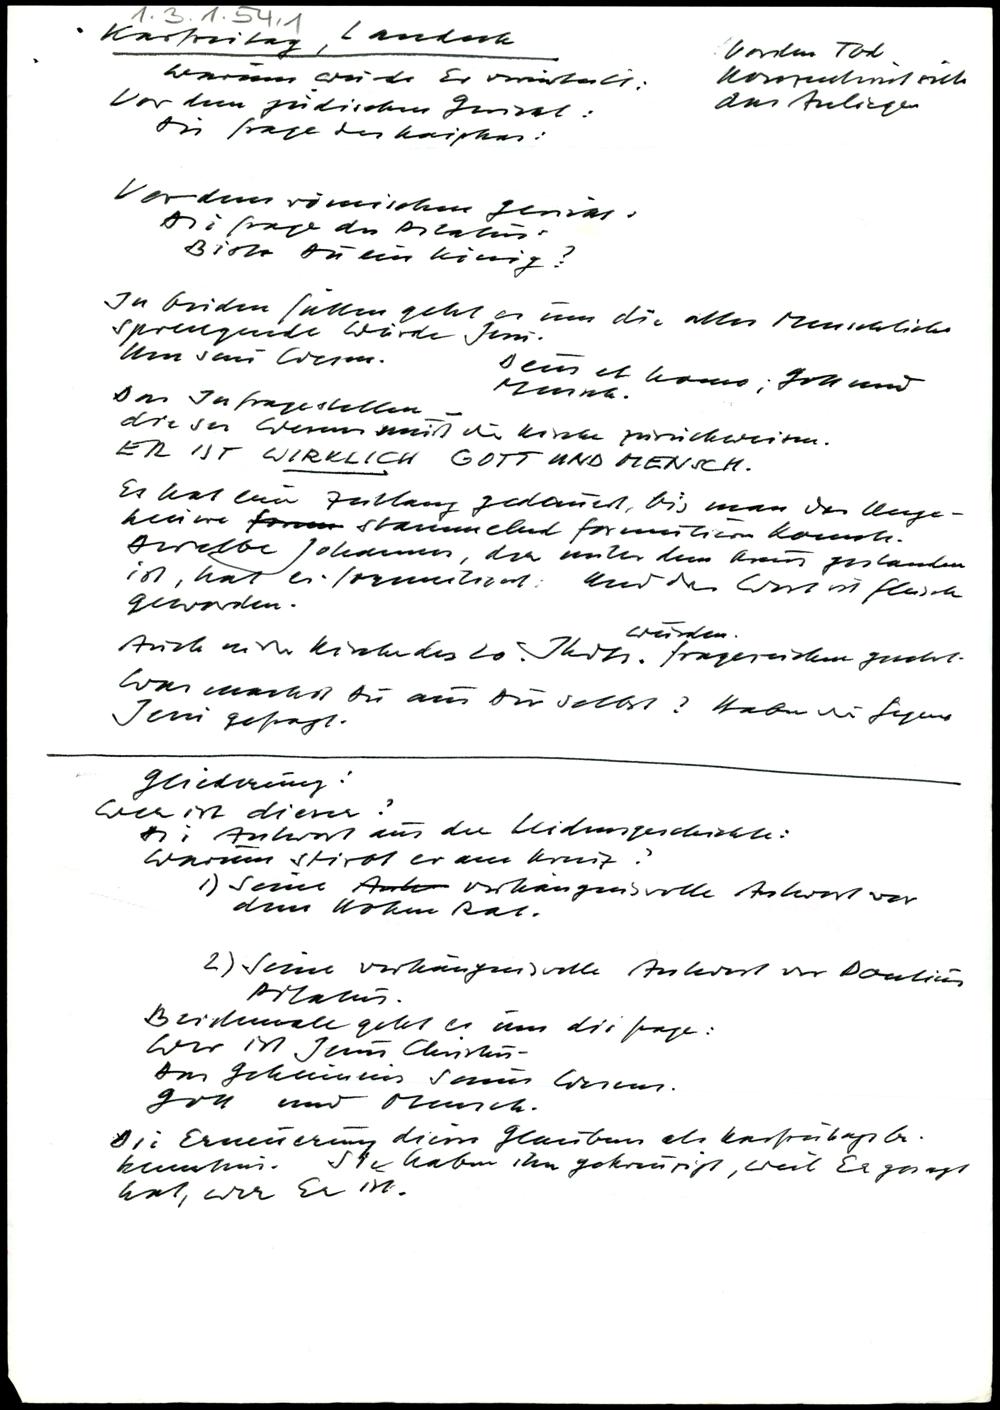 1.3.1.54.1
Karfreitag, Landeck
Vor dem Tod
konzentriert sich
das Anliegen
Warum wurde Er verurteilt:
Vor dem jüdischen Gericht:
Die Frage des Kaiphas:
Vor dem römischen Gericht.
Die Frage des Pilatus:
Bist Du ein König?
In beiden Fällen geht es um die alles Menschliche
sprengende Würde Jesu.
Um sein Wesen.
Deus et homo; Gott und
Mensch.
Das Infragestellen
dieses Wesens muß die Kirche zurückweisen.
ER IST WIRKLICH GOTT UND MENSCH.
Es hat eine Zeitlang gedauert, bis man das Unge-
heure stammelnd formulieren konnte.
Derselbe Johannes, der unter dem Kreuz gestanden
ist, hat es formuliert: Und das Wort ist Fleisch
geworden.
Auch in der Kirche des 20. Jhdts. würden Fragezeichen gesetzt.
Was machst Du aus Dir selbst? Haben die Gegner
Jesu gefragt.
Gliederung:
Wer ist dieser?
Die Antwort aus der Leidensgeschichte:
Warum stirbt er am Kreuz?
1) Seine verhängnisvolle Antwort vor
dem Hohen Rat.
2) Seine verhängnisvolle Antwort vor Pontius
Pilatus.
Beidemale geht es um die Frage:
Wer ist Jesus Christus-
Das Geheimnis Seines Wesens.
Gott und Mensch.
Die Erneuerung dieses Glaubens als Karfreitagsbe-
kenntnis. Sie haben ihn gekreuzigt, weil Er gesagt
hat, wer Er ist.